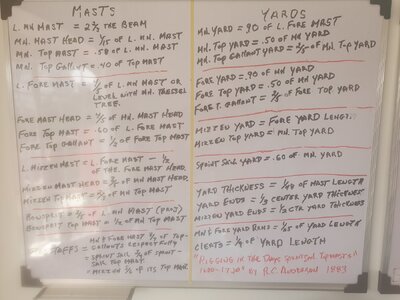 MASTS
L. MN MAST = 2⅔ THE BEAM
MN. MAST HEAD = 1/15 OF L. MN. MAST
MN. TOP MAST = .58 OF L. MN. MAST
MN. TOP GALLANT = .40 OF TOP MAST
L. FORE MAST = OF L. MN MAST OR
LEVEL WITH MN. TRESSEL
TREE.
FORE MAST HEAD = OF MN. MAST HEAD
FORE TOP MAST = .60 OF L. FORE MAST
FORE TOP GALLANT = 1/2 OF FORE TOP MAST
L. MIZZEN MAST = L. FORE MAST - 1/2
OF THE. FORE MAST HEAD
MIZZEN MAST HEAD = OF MN MAST HEAD.
MIZZEN TOP MAST = OF MN TOP MAST
BOWSPRIT = OF L. MN MAST (PROJ)
BOWSPRIT TOP MAST = 1/2 OF MN TOP MAST
STAFFS = MN & FORE MAST OF TOP-
GALLANTS RESPECTFULLY
= SPRINT SAIL OF SPRINT-
SAIL TOP MAST.
= MIZZEN OF ITS TOP MAST.
YARDS
MN. YARD = .90 OF L. FORE MAST
MN. TOP YARD = .50 OF MN. YARD
MN. TOP GALLANT YARD = OF MN. TOP YARD
FORE YARD = .90 OF MN YARD
FORE TOP YARD = .50 OF MN. YARD
FORE T. GALLANT = OF FORE TOP YARD
MIZZEN YARD = FORE YARD LENGTH.
MIZZEN TOP YARD = MN. TOP YARD
SPRINT SAIL YARD = .60 OF MN. YARD
YARD THICKNESS = OF MAST LENGTH
YARD ENDS = 1/3 CENTER YARD THICKNESS
MIZZEN YARD ENDS = 1/2 CTR YARD THICKNESS
MN & FORE YARD ARMS = OF YARD LENGTH
CLEATS = OF YARD LENGTH
"RIGGING IN THE DAYS SPRINTSAIL TOPMASTS"
1600-1720" BY R.C. ANDERSON 1883